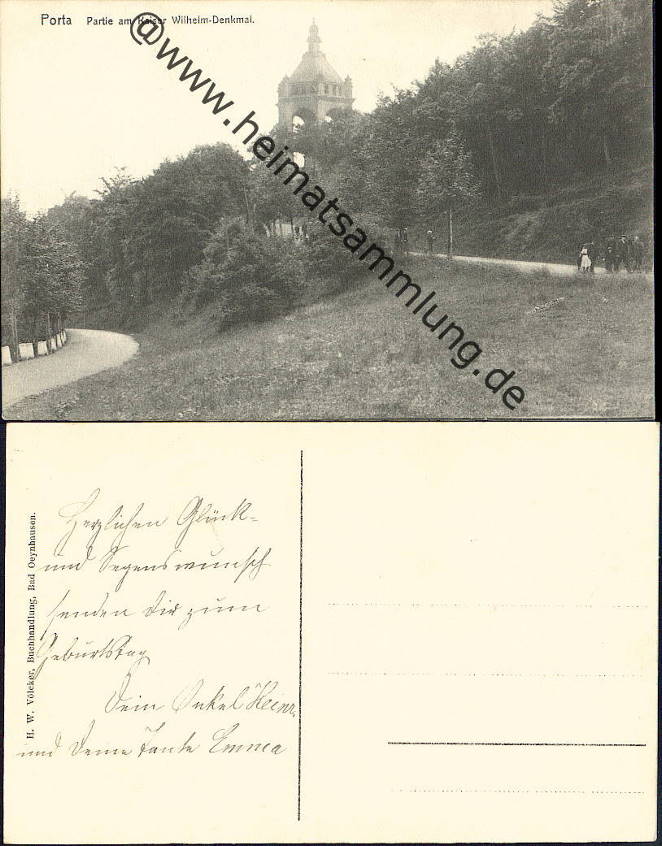 Porta Partie am Kaiser Wilhelm-Denkmal.
@www.heimatsammlung.de
H. W. Völcker, Buchhandlung, Bad Oeynhausen.
Herzlichen Glück-
und Segenswunsch
senden Dir zum
Geburtstag
Dein Onkel Heinr.
und Deine Tante Emma